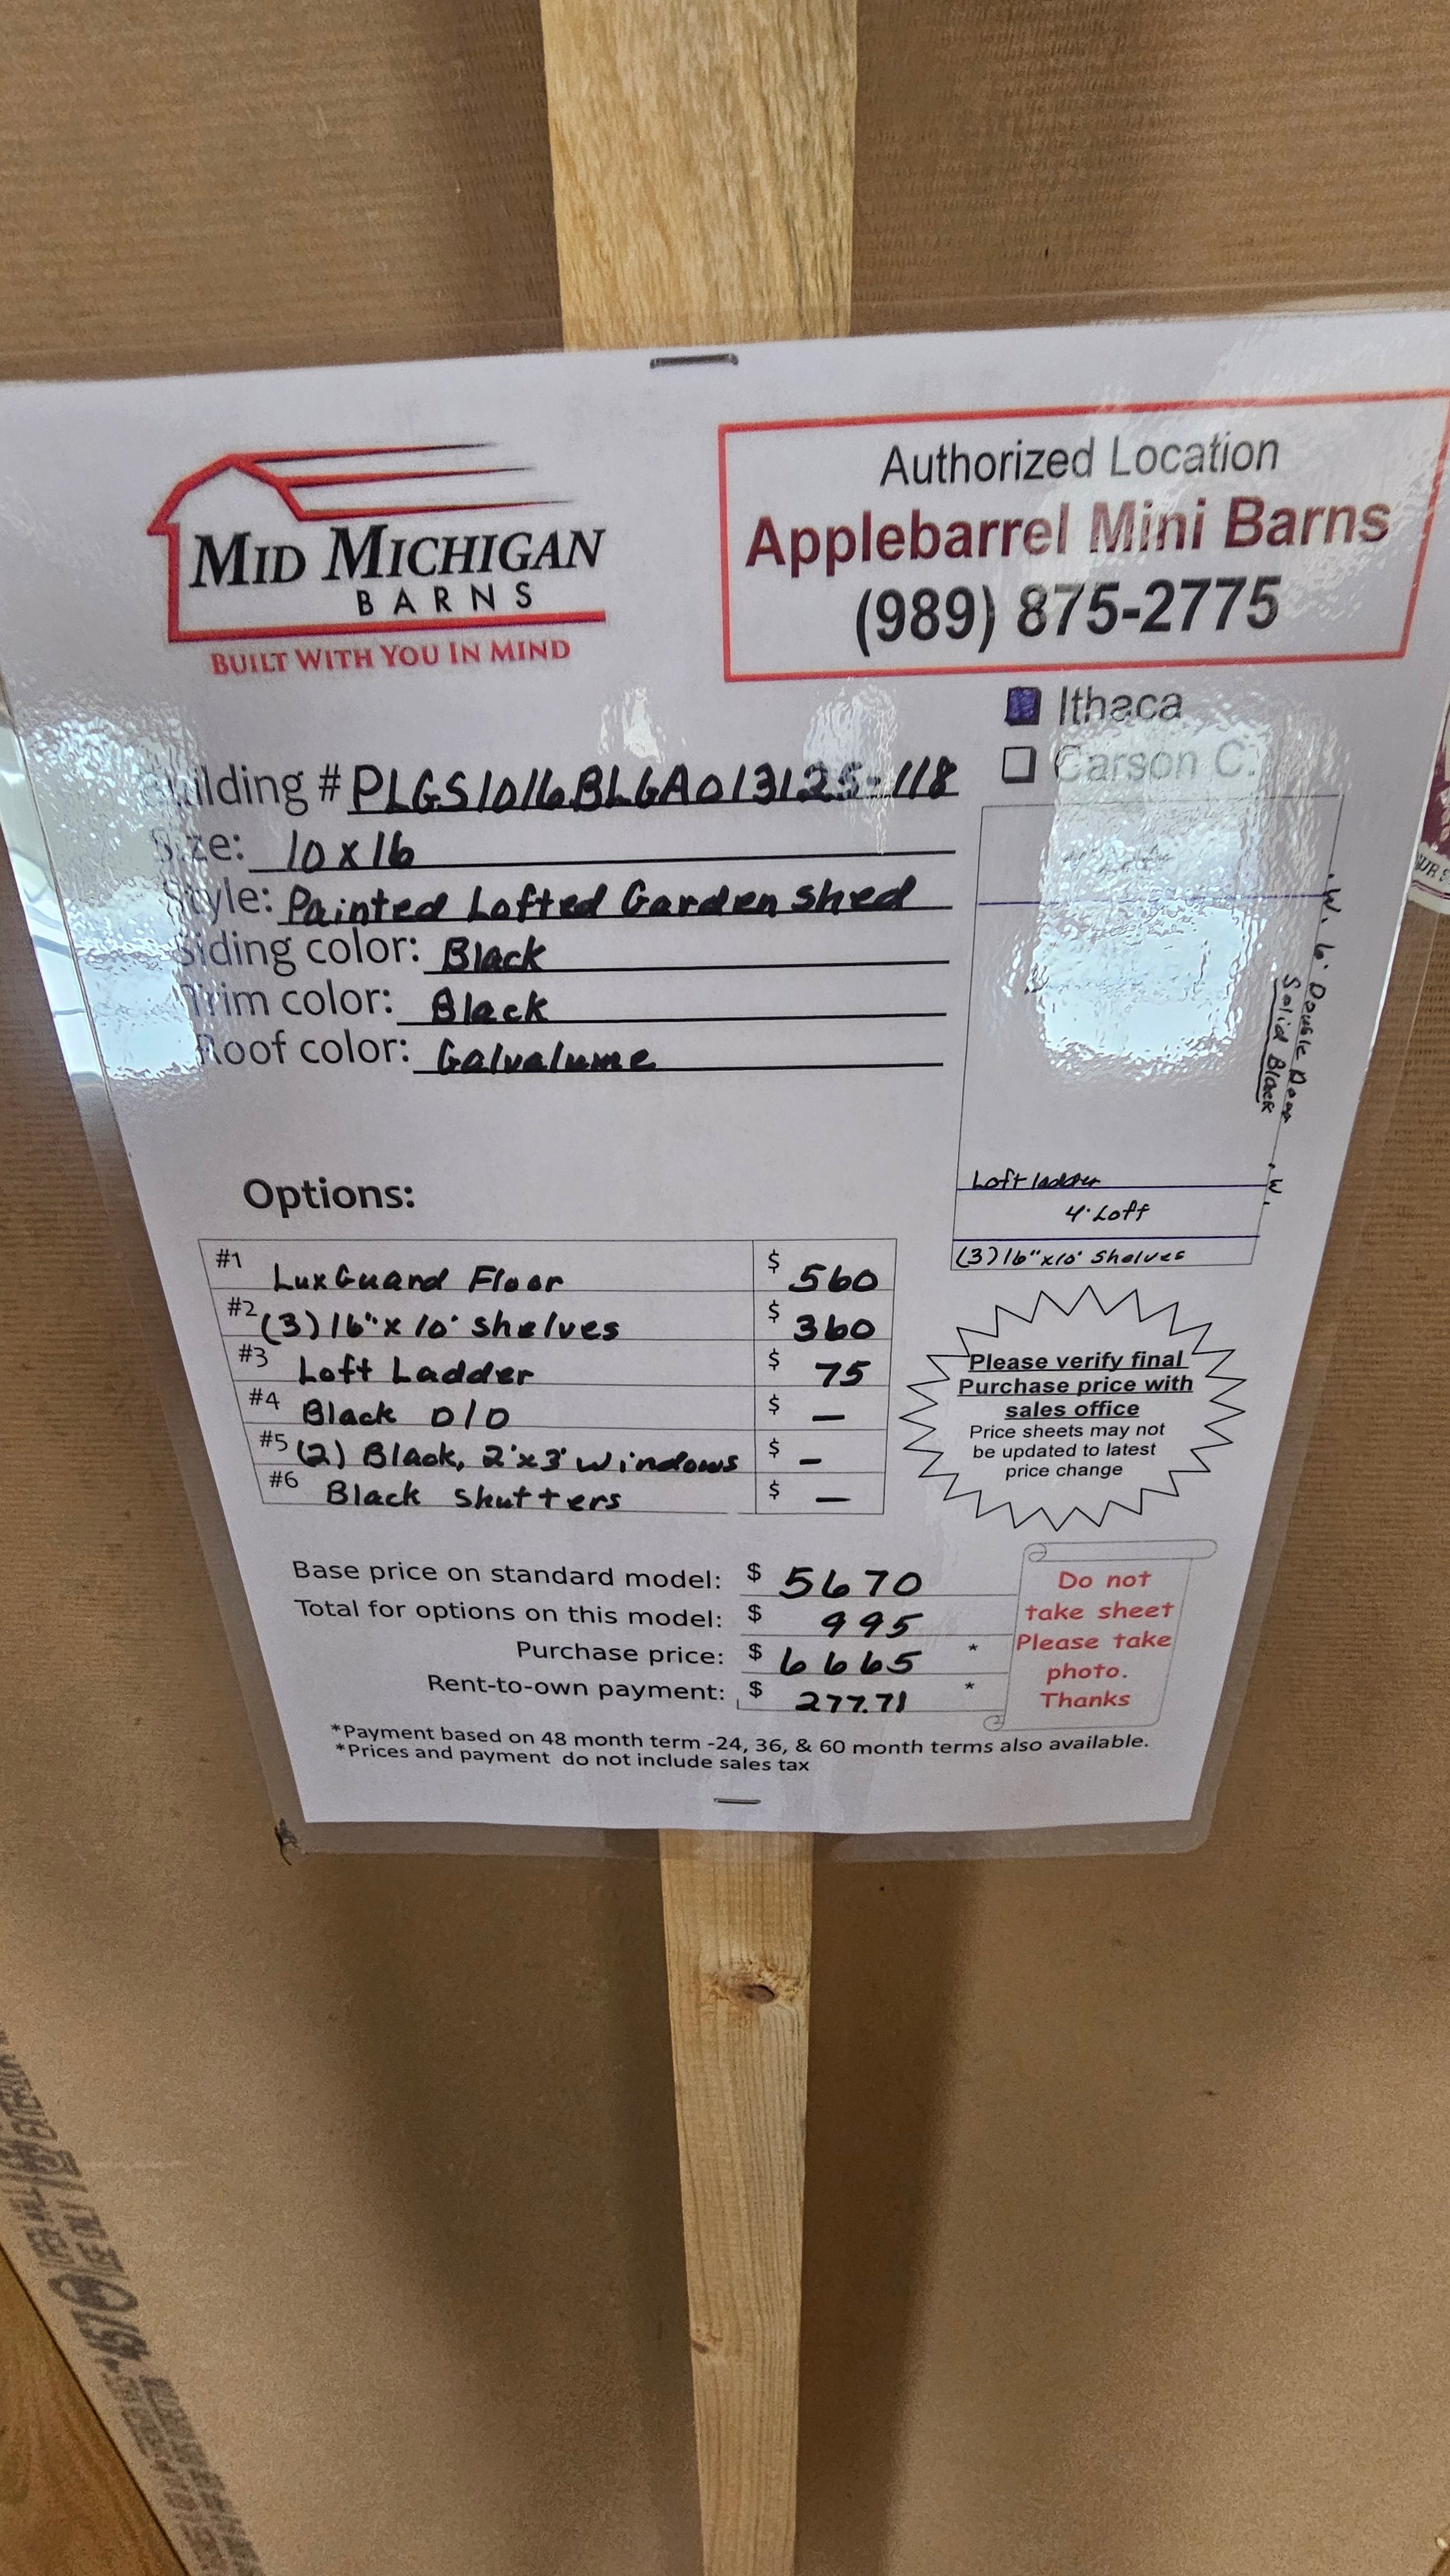 MID MICHIGAN
BARNS
BUILT WITH YOU IN MIND
Authorized Location
Applebarrel Mini Barns
(989) 875-2775
Ithaca
Carson C.
Building # PLGS1016BLGA013125-118
Size: 10x16
Style: Painted Lofted Garden Shed
Siding color: Black
Trim color: Black
Roof color: Galvalume
W.
6' Double Door
Solid Black
W.
Loft ladder
4' Loft
(3) 16"x10' Shelves
Options:
#1 LuxGuard Floor $ 560
#2 (3) 16"x 10' shelves $ 360
#3 Loft Ladder $ 75
#4 Black D/D $ —
#5 (2) Black, 2'x3' windows $ –
#6 Black Shutters $ —
Please verify final
Purchase price with
sales office
Price sheets may not
be updated to latest
price change
Base price on standard model: $ 5670
Total for options on this model: $ 995
Purchase price: $ 6665 *
Rent-to-own payment: $ 277.71 *
Do not
take sheet
Please take
photo.
Thanks
*Payment based on 48 month term -24, 36, & 60 month terms also available.
*Prices and payment do not include sales tax